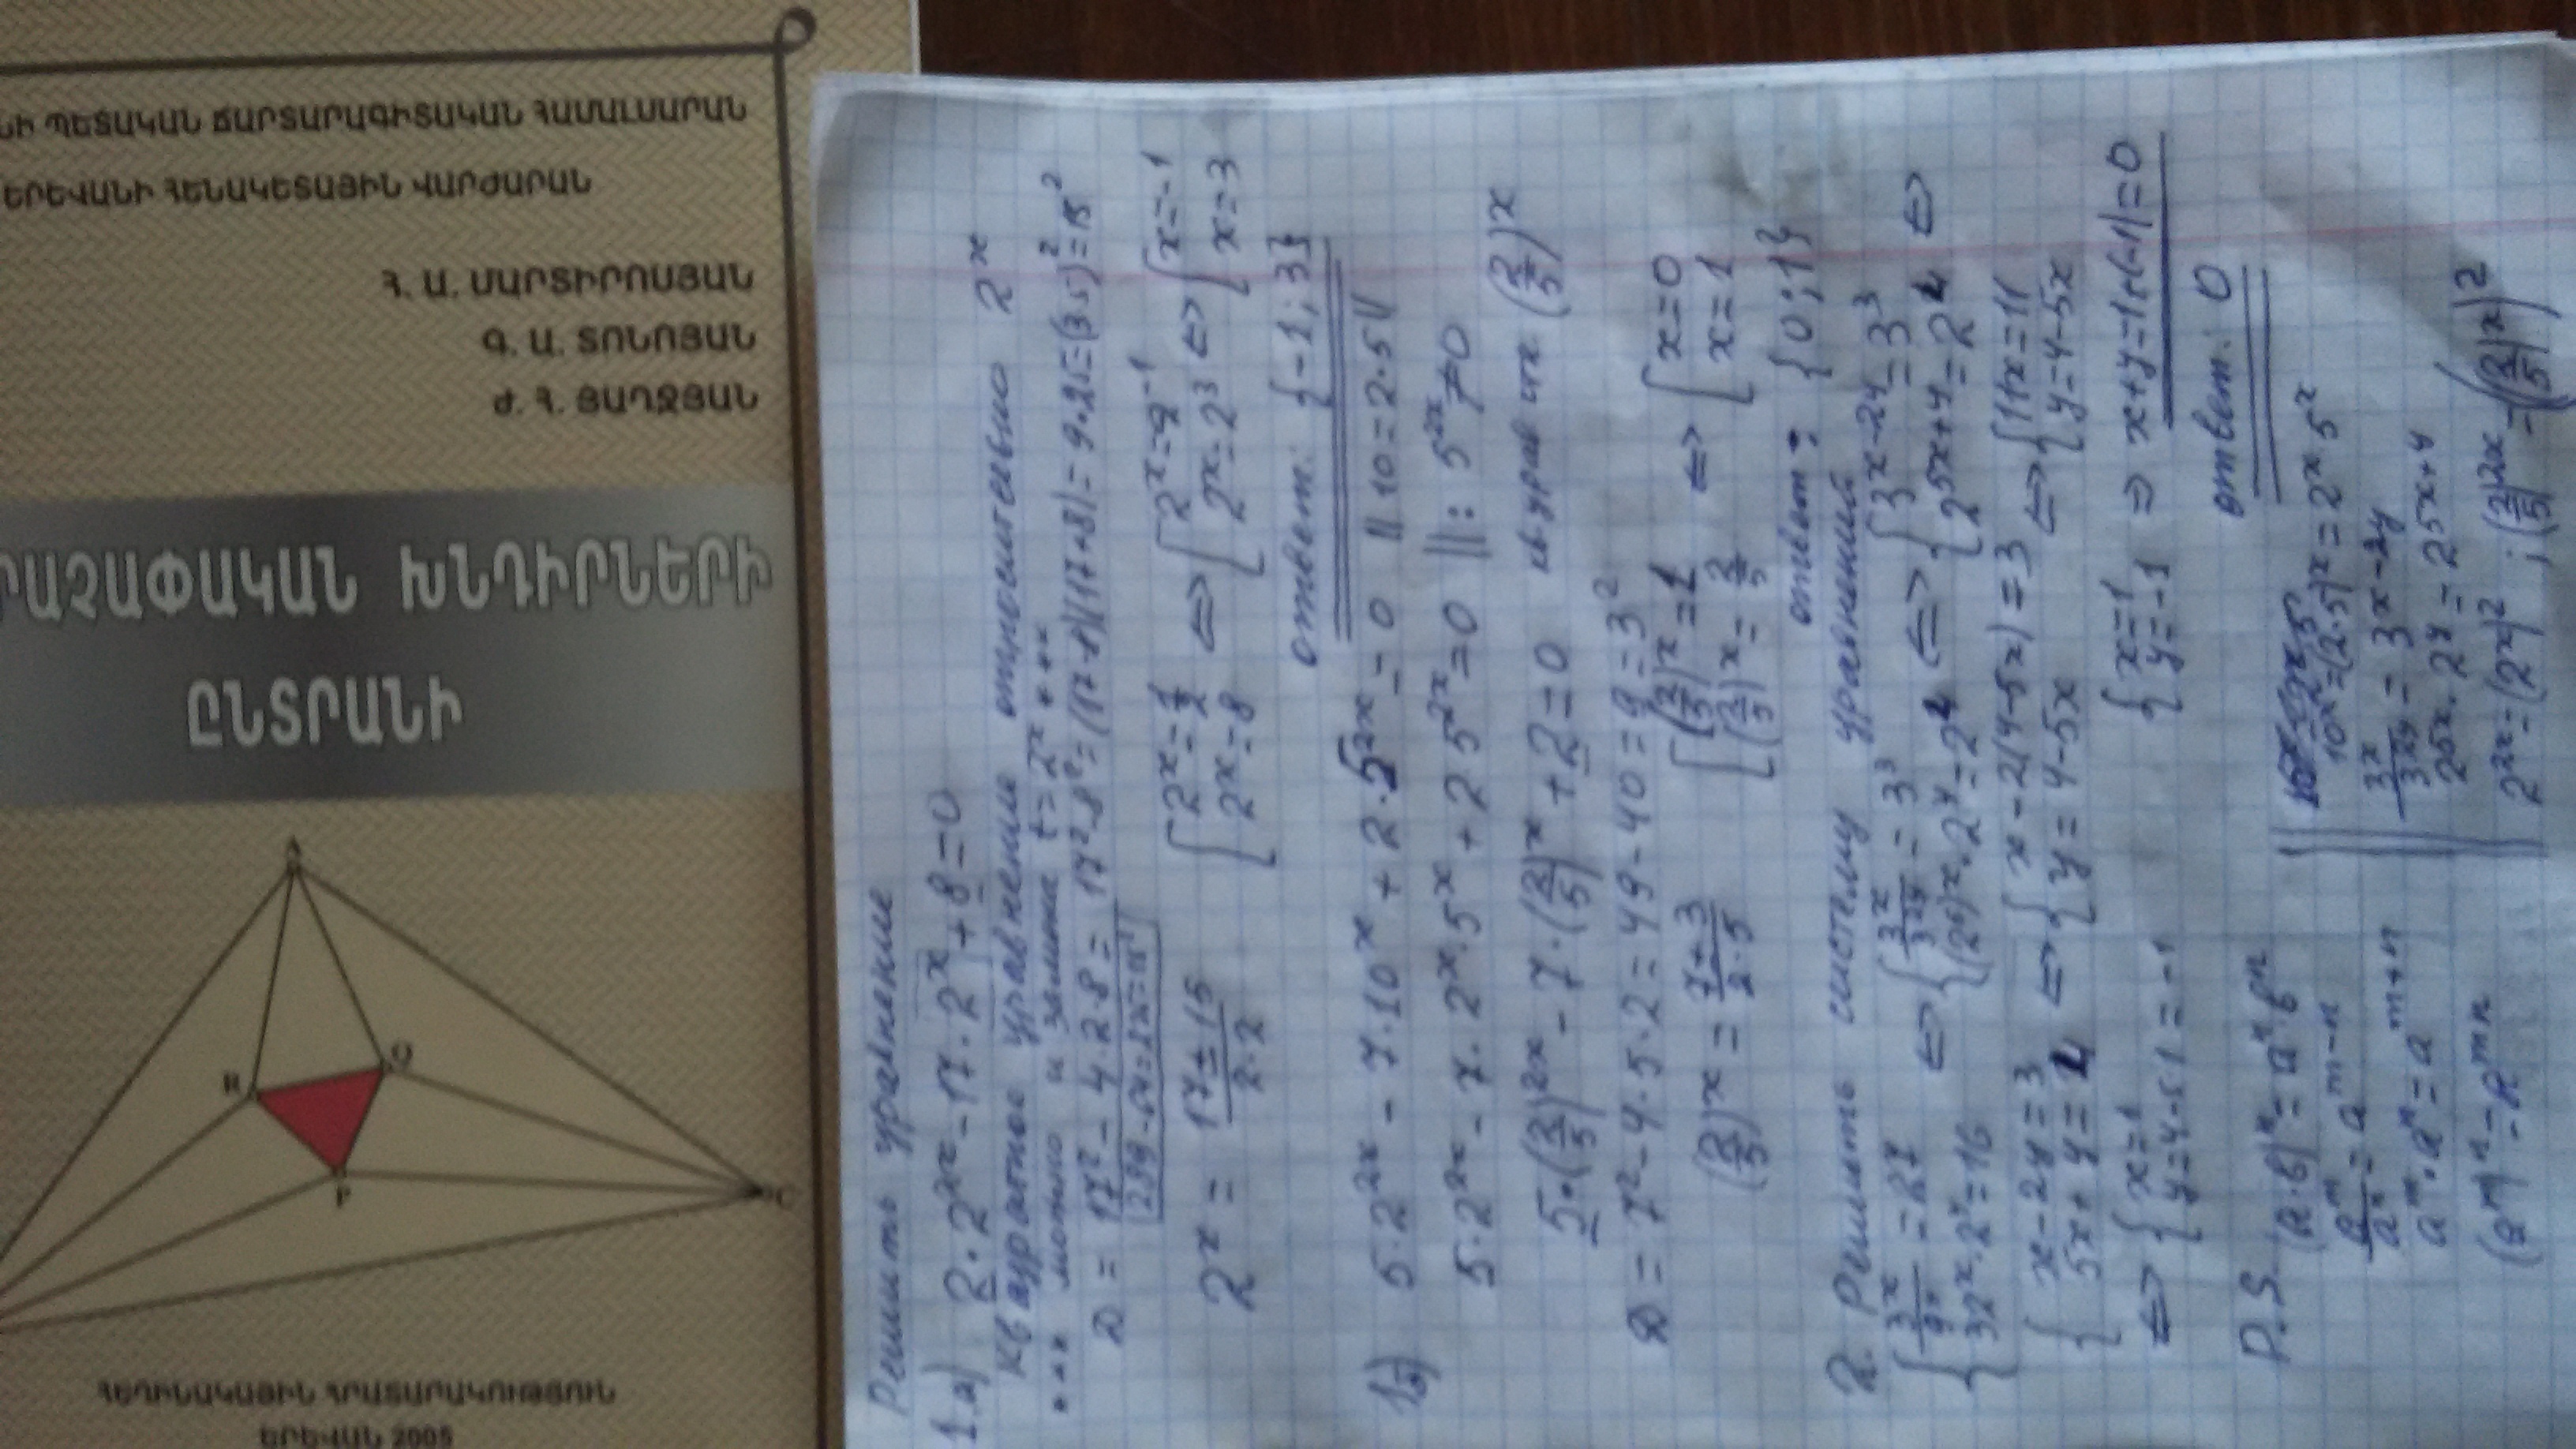 ՆԻ ՊԵՏԱԿԱՆ ՃԱՐՏԱՐԱԳԻՏԱԿԱՆ ՀԱՄԱԼՍԱՐԱՆ
ԵՐԵՎԱՆԻ ՀԵՆԱԿԵՏԱՅԻՆ ՎԱՐԺԱՐԱՆ
Հ. Ա. ՄԱՐՏԻՐՈՍՅԱՆ
Գ. Ա. ՏՈՆՈՅԱՆ
Ժ. Հ. ՅԱՂՋՅԱՆ
ՐԱՉԱՓԱԿԱՆ ԽՆԴԻՐՆԵՐԻ
ԸՆՏՐԱՆԻ
A
R
Q
P
C
ՀԵՂԻՆԱԿԱՅԻՆ ՀՐԱՏԱՐԱԿՈՒԹՅՈՒՆ
ԵՐԵՎԱՆ 2005
Решить уравнение
1.a) 2·2^{2x} - 17·2^x + 8 = 0
Квадратное уравнение относительно 2^x
*** можно и замена t = 2^x ***
D = 17² - 4·2·8 = 17² - 8² = (17-8)(17+8) = 9·25 = (3·5)² = 15²
2^x = (17 ± 15)/(2·2) [2^x = 1/2 2^x = 8 ⇔ [2^x = 2^{-1} 2^x = 2³ ⇔ [x = -1 x = 3
ответ: {-1; 3}
5·2^{2x} - 7·10^x + 2·5^{2x} = 0 || 10 = 2·5 ||
5·2^{2x} - 7·2^x·5^x + 2·5^{2x} = 0 ||: 5^{2x} ≠ 0
5·(2/5)^{2x} - 7·(2/5)^x + 2 = 0 (2/5)^x
D = 7² - 4·5·2 = 49 - 40 = 9 = 3²
(2/5)^x = (7 ± 3)/(2·5) [(2/5)^x = 1 (2/5)^x = 2/5 ⇔ [x = 0 x = 1
ответ: {0; 1}
2. Решить систему уравнений
{3^x/9^y = 27 32^x·2^y = 16 ⇔ {3^x/3^{2y} = 3³ (2^5)^x·2^y = 2^4 ⇔ {3^{x-2y} = 3³ 2^{5x+y} = 2^4 ⇔
{x - 2y = 3 5x + y = 4 ⇔ {x - 2(4-5x) = 3 y = 4-5x ⇔ {11x = 11 y = 4-5x
⇔ {x = 1 y = 4-5·1 = -1 {x = 1 y = -1 ⇒ x+y = 1+(-1) = 0
ответ: 0
P.S. (a·b)^n = a^n·b^n 10^x = (2·5)^x = 2^x·5^x
a^m/a^n = a^{m-n} 3^x/3^{2y} = 3^{x-2y}
a^m·a^n = a^{m+n} 2^{5x}·2^y = 2^{5x+y}
(a^m)^n = a^{mn} 2^{2x} = (2^x)² ; (2/5)^{2x} = ((2/5)^x)²